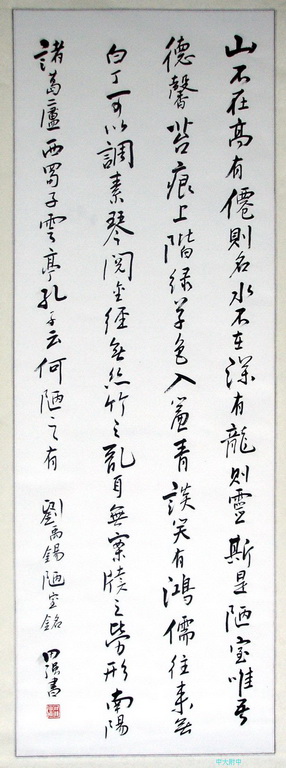 山不在高有僊則名水不在深有龍則靈斯是陋室唯吾
德馨苔痕上階綠草色入簾青談笑有鴻儒往來無
白丁可以調素琴閱金經無絲竹之亂耳無案牘之勞形南陽
諸葛廬西蜀子雲亭孔子云何陋之有
劉禹錫陋室銘
書
中大附中